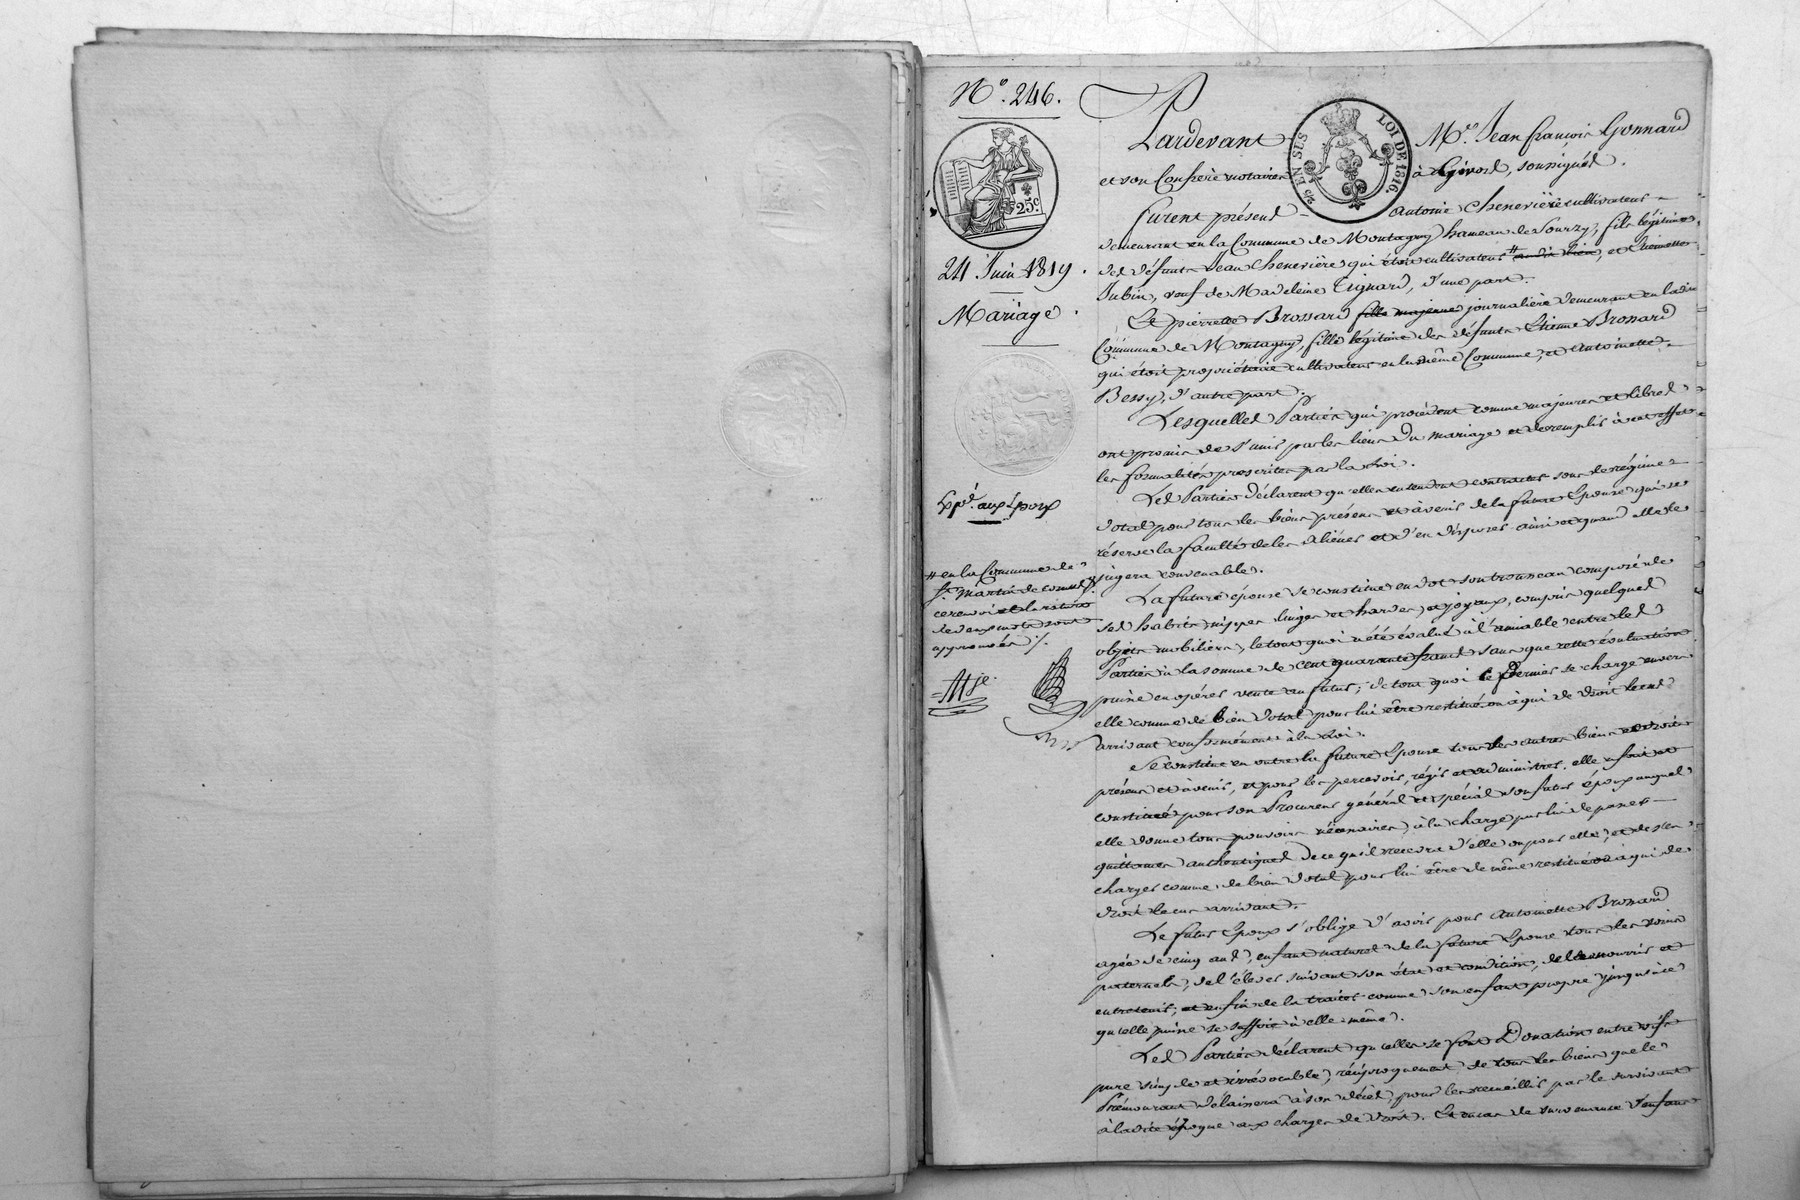 N.º 246.
25.c
24 Juin 1819.
Mariage.
Exp.é aux Epoux
# en la Commune de
S.t Martin de
ce renvoi et la rature
de deux mots sont
approuvés ./.
Pardevant M.e Jean françois Gonnard
EN SUS LOI DE 1816.
et son Confrere notaires à Givors, soussignés.
furent présens Antoine Chenevière cultivateur
demeurant en la Commune de Montagny hameau de Sourzy, fils légitime
des défunts Jean Chenevière qui étoit cultivateur # et Auemette
Jubin, veuf de Madeleine Tignard, d'une part.
Et pierrette Brossard fille majeure journalière demeurant en ladite
Commune de Montagny, fille légitime des défunts Etienne Brossard
qui étoit propriétaire cultivateur en la même Commune, et Antoinette
Bessy, d'autre part.
Lesquelles Parties qui procèdent comme majeures et libres
ont promis de s'unir par les liens du mariage et de remplir à cet effet
les formalités prescrites par la Loi.
Les Parties déclarent qu'elles entendent contracter sous le régime
dotal pour tous les biens présens et à venir de la future Epouse qui se
réserve la faculté de les aliéner et d'en disposer ainsi et quand elle le
jugera convenable.
La future épouse se constitue en dot son trousseau composé de
ses habits, nippes, linges et hardes, et joyaux, compris quelques
objets mobiliers, le tout qui a été évalué à l'amiable entre les
Parties à la somme de cent quarante francs sans que cette évaluation
puisse en opérer vente au futur; de tout quoi ce dernier se charge envers
elle comme de bien dotal pour lui être restitué ou à qui de droit le cas
arrivant conformément à la Loi.
Se constitue en outre la future Epouse tous les autres biens et droits
présens et à venir, et pour les percevoir, régir et administrer, elle a fait et
constitué pour son Procureur général et spécial son futur époux auquel
elle donne tous pouvoirs nécessaires, à la charge par lui de passer
quittances authentiques de ce qu'il recevra d'elle ou pour elle, et de s'en
charger comme de bien dotal pour lui être de même restitué ou à qui de
droit le cas arrivant.
Le futur Epoux s'oblige d'avoir pour Antoinette Brossard
agée de cinq ans, enfant naturel de la future Epouse tous les soins
paternels, de l'élever suivant son état et condition, de la nourrir et
entretenir, et enfin de la traiter comme son enfant propre jusqu'à ce
qu'elle puisse se suffire à elle-même.
Les Parties déclarent qu'elles se font Donation entre vifs
pure simple et irrévocable, réciproquement de tous les biens que le
Prémourant délaissera à son décès, pour les recueillir par le survivant
à ladite époque aux charges de droit. Et en cas de survenance d'enfans